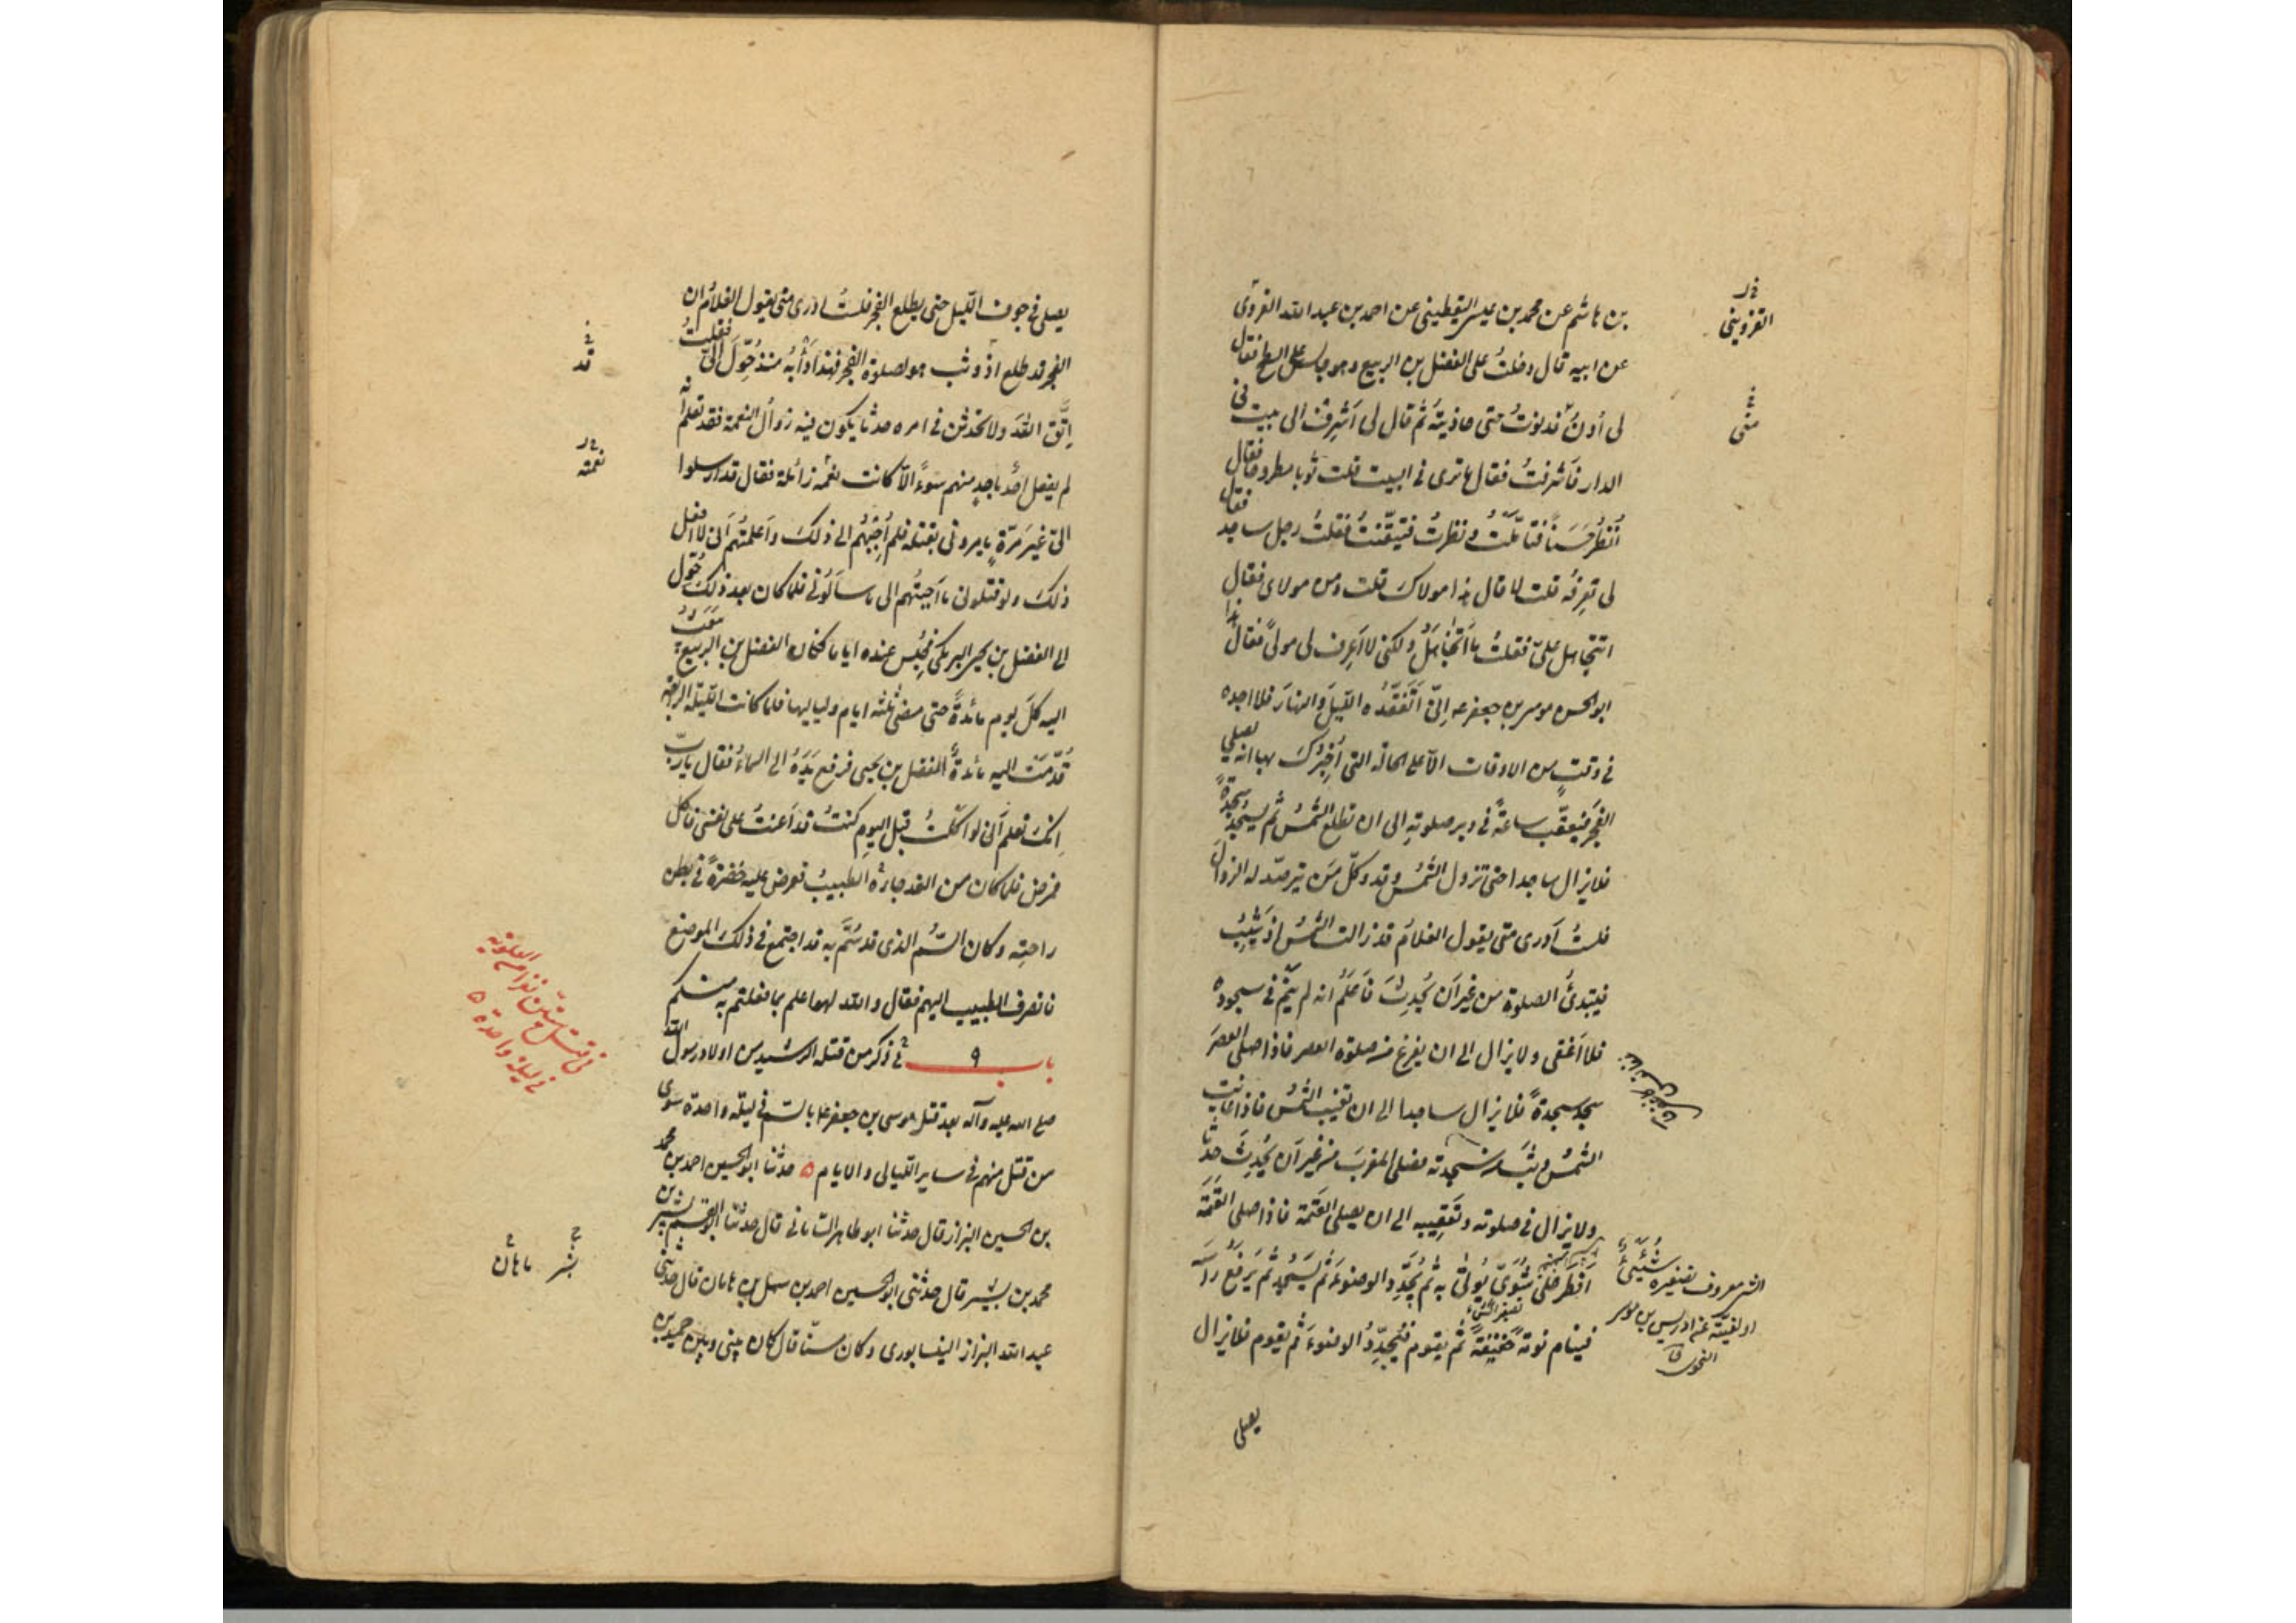 بن هاشم عن محمد بن عيسى اليقطينى عن احمد بن عبد الله الغروى
عن ابيه قال دخلتُ على الفضل بن الربيع وهو جالس على السطح فقال
لى اُدنُ فدنوتُ حتى حاذيتُه ثم قال لى اَشرِف الى بيت فى
الدار فاَشرفتُ فقال ما ترى فى البيت قلت ثوبا مطروحا فقال
اُنظُر حَسَناً فتاَمّلتُ ونظرتُ فتيقّنتُ فقلتُ رجل ساجد فقال
لى تَعرِفُه قلت لا قال هذا مولاكَ قلت ومن مولاى فقال
اتتجاهل علىّ فقلتُ ما اَتَجاهَلُ ولكنى لا اَعرِف لى مولىً فقال هذا
ابو الحسن موسى بن جعفر عه اِنّى اَتَفَقَّدُه الليلَ والنهارَ فلا اجده
فى وقتٍ من الاوقات الّا على الحالة التى اُخبِرُكَ بها انه يصلى
الفجر فيعقّب ساعةً فى دبر صلوته الى ان تطلع الشمسُ ثم يسجُد سجدةً
فلا يزال ساجدا حتى تزول الشمسُ وقد وكّل مَن يترصّد له الزوالَ
فلستُ اَدرى متى يقول الغلامُ قد زالت الشمسُ اذ يَثِبُ
فيبتدئُ الصلوة من غير اَن يُحدِثَ فاَعلَمُ انه لم يَنَم فى سجوده
ولا اَغفى ولا يزال الى ان يفرغ من صلوة العصر فاذا صلى العصرَ
سجد سجدةً فلا يزال ساجدا الى ان تغيب الشمسُ فاذا غابت
الشمسُ وثب من سجدته فصلى المغربَ من غير اَن يُحدِثَ حدثا
ولا يزال فى صلوته وتَعقِيبِه الى ان يصلى العَتَمة فاذا صلى العَتَمَة
اَفطَر على شُوَىٍّ يُؤتى به ثم يُجَدِّد الوضوءَ ثم يَسجُد ثم يَرفَعُ راسَه
فينام نومةً خفيفةً ثم يقوم فيُجدِّدُ الوضوءَ ثم يقوم فلا يزال
يصلى
القزوينى
الشىء معروف تصغيره شُيَىءٌ
او لغيّة عن ادريس بن موسى
النحوى
يصلى فى جوف الليل حتى يطلع الفجر فلستُ ادرى متى يقول الغلامُ ان
الفجر قد طلع اذ وثب هو لصلوة الفجر فهذا دَأبُه منذ حُوِّلَ اِلىَّ فقلتُ
اِتَّق اللهَ ولا تُحدثن فى امره حدثا يكون فيه زوالُ النعمة فقد تعلم اَنه
لم يفعل احدٌ باحدٍ منهم سُوءً الّا كانت نعمته زائلة فقال قد ارسلوا
الىّ غيرَ مَرّةٍ يامرونى بقتله فلم اُجِبهُم الى ذلكَ واَعلمتُهم اَنى لا افعل
ذلكَ ولو قتلونى ما اَجبتُهم الى ما سأَلونى فلما كان بعد ذلكَ حُوّل
الى الفضل بن يحيى البرمكى فحُبِس عنده اياما فكان الفضل بن الربيع يبعث
اليه كلَ يوم مائدةً حتى مضى ثلثه ايام ولياليها فلما كانت الليلة الرابعة
قُدِّمَت اليه مائدةٌ للفضل بن يحيى فرفع يَدَهُ الى السماءِ فقال يا ربِّ
اِنكَ تعلم اَنى لو اكلتُ قبل اليوم كنتُ قد اَعنتُ على نفسى فاكل
فمرض فلما كان من الغد جاءَه الطبيبُ فعرض عليه خُضرَةً فى بطن
راحته وكان السُّم الذى قد سُمَّ به قد اجتمع فى ذلكَ الموضع
فانصرف الطبيب اليهم فقال والله لهو اعلم بما فعلتم به منكم
باب ٩ فى ذكر من قتله الرشيد من اولاد رسول الله
صلى الله عليه وآله بعد قتل موسى بن جعفر عه بالسم فى ليلة واحدة سوى
من قتل منهم فى ساير الليالى والايام ٥ حدثنا ابو الحسين احمد بن محمد
بن الحسين البزاز قال حدثنا ابو طاهر السامانى قال حدثنا ابو القسم بشر بن
محمد بن بشير قال حدثنى ابو الحسين احمد بن سهل بن ماهان قال حدثنى
عبد الله البزاز النيسابورى وكان مسنّا قال كان بينى وبين حميد بن
قد
نعمته
فى قتل ستّين نفرا من العلوية
فى ليلة واحدة ٥
بشر ماهان